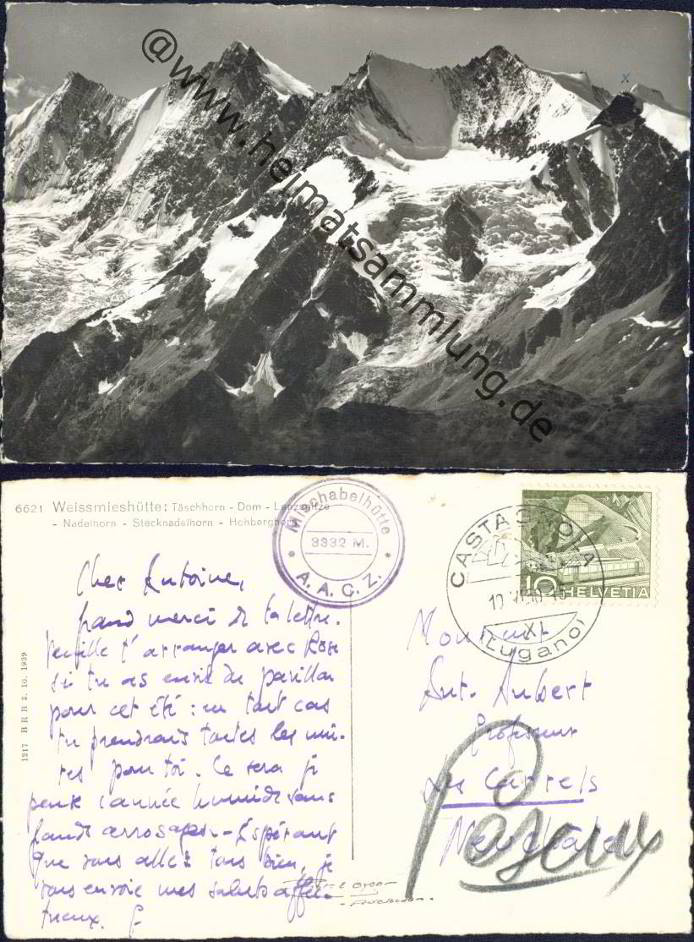 @www.heimatsammlung.de
x
6621 Weissmieshütte: Täschhorn - Dom - Lenzspitze
- Nadelhorn - Stecknadelhorn - Hohberghorn
Mischabelhütte
3332 M.
A. A. C. Z.
CASTAGNOLA
XI
(Lugano)
10 HELVETIA
1217 B R B 2. 10. 1939
Cher Antoine,
grand merci de ta lettre.
Veuille t'arranger avec Rose
si tu as envie du pavillon
pour cet été : en tout cas
tu prendrais toutes les
pour toi. Ce sera je
pense l'année humide sans
arrosages - Espérant
que vous allez tous bien, je
vous envoie mes saluts affec-
tueux.
Monsieur
Ant. Aubert
Professeur
Les Carrels
Neuchâtel
Peseux